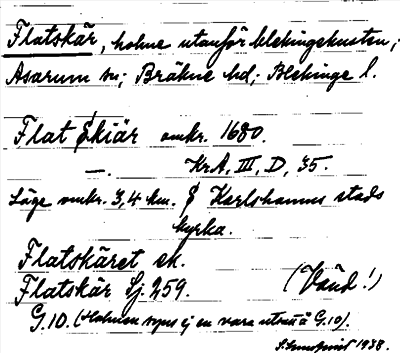 Flatskär, holme utanför blekingekusten;
Asarum sn; Bräkne hd; Blekinge l.
Flat Skiär omkr. 1680.
—. KrA, III, D, 35.
Läge omkr. 3,4 km. S Karlshamns stads
kyrka.
Flatskäret ek.
Flatskär Sj. 259. (Vänd!)
G.10. (Holmen synes ej en vara utsatt å G.10).
1938.